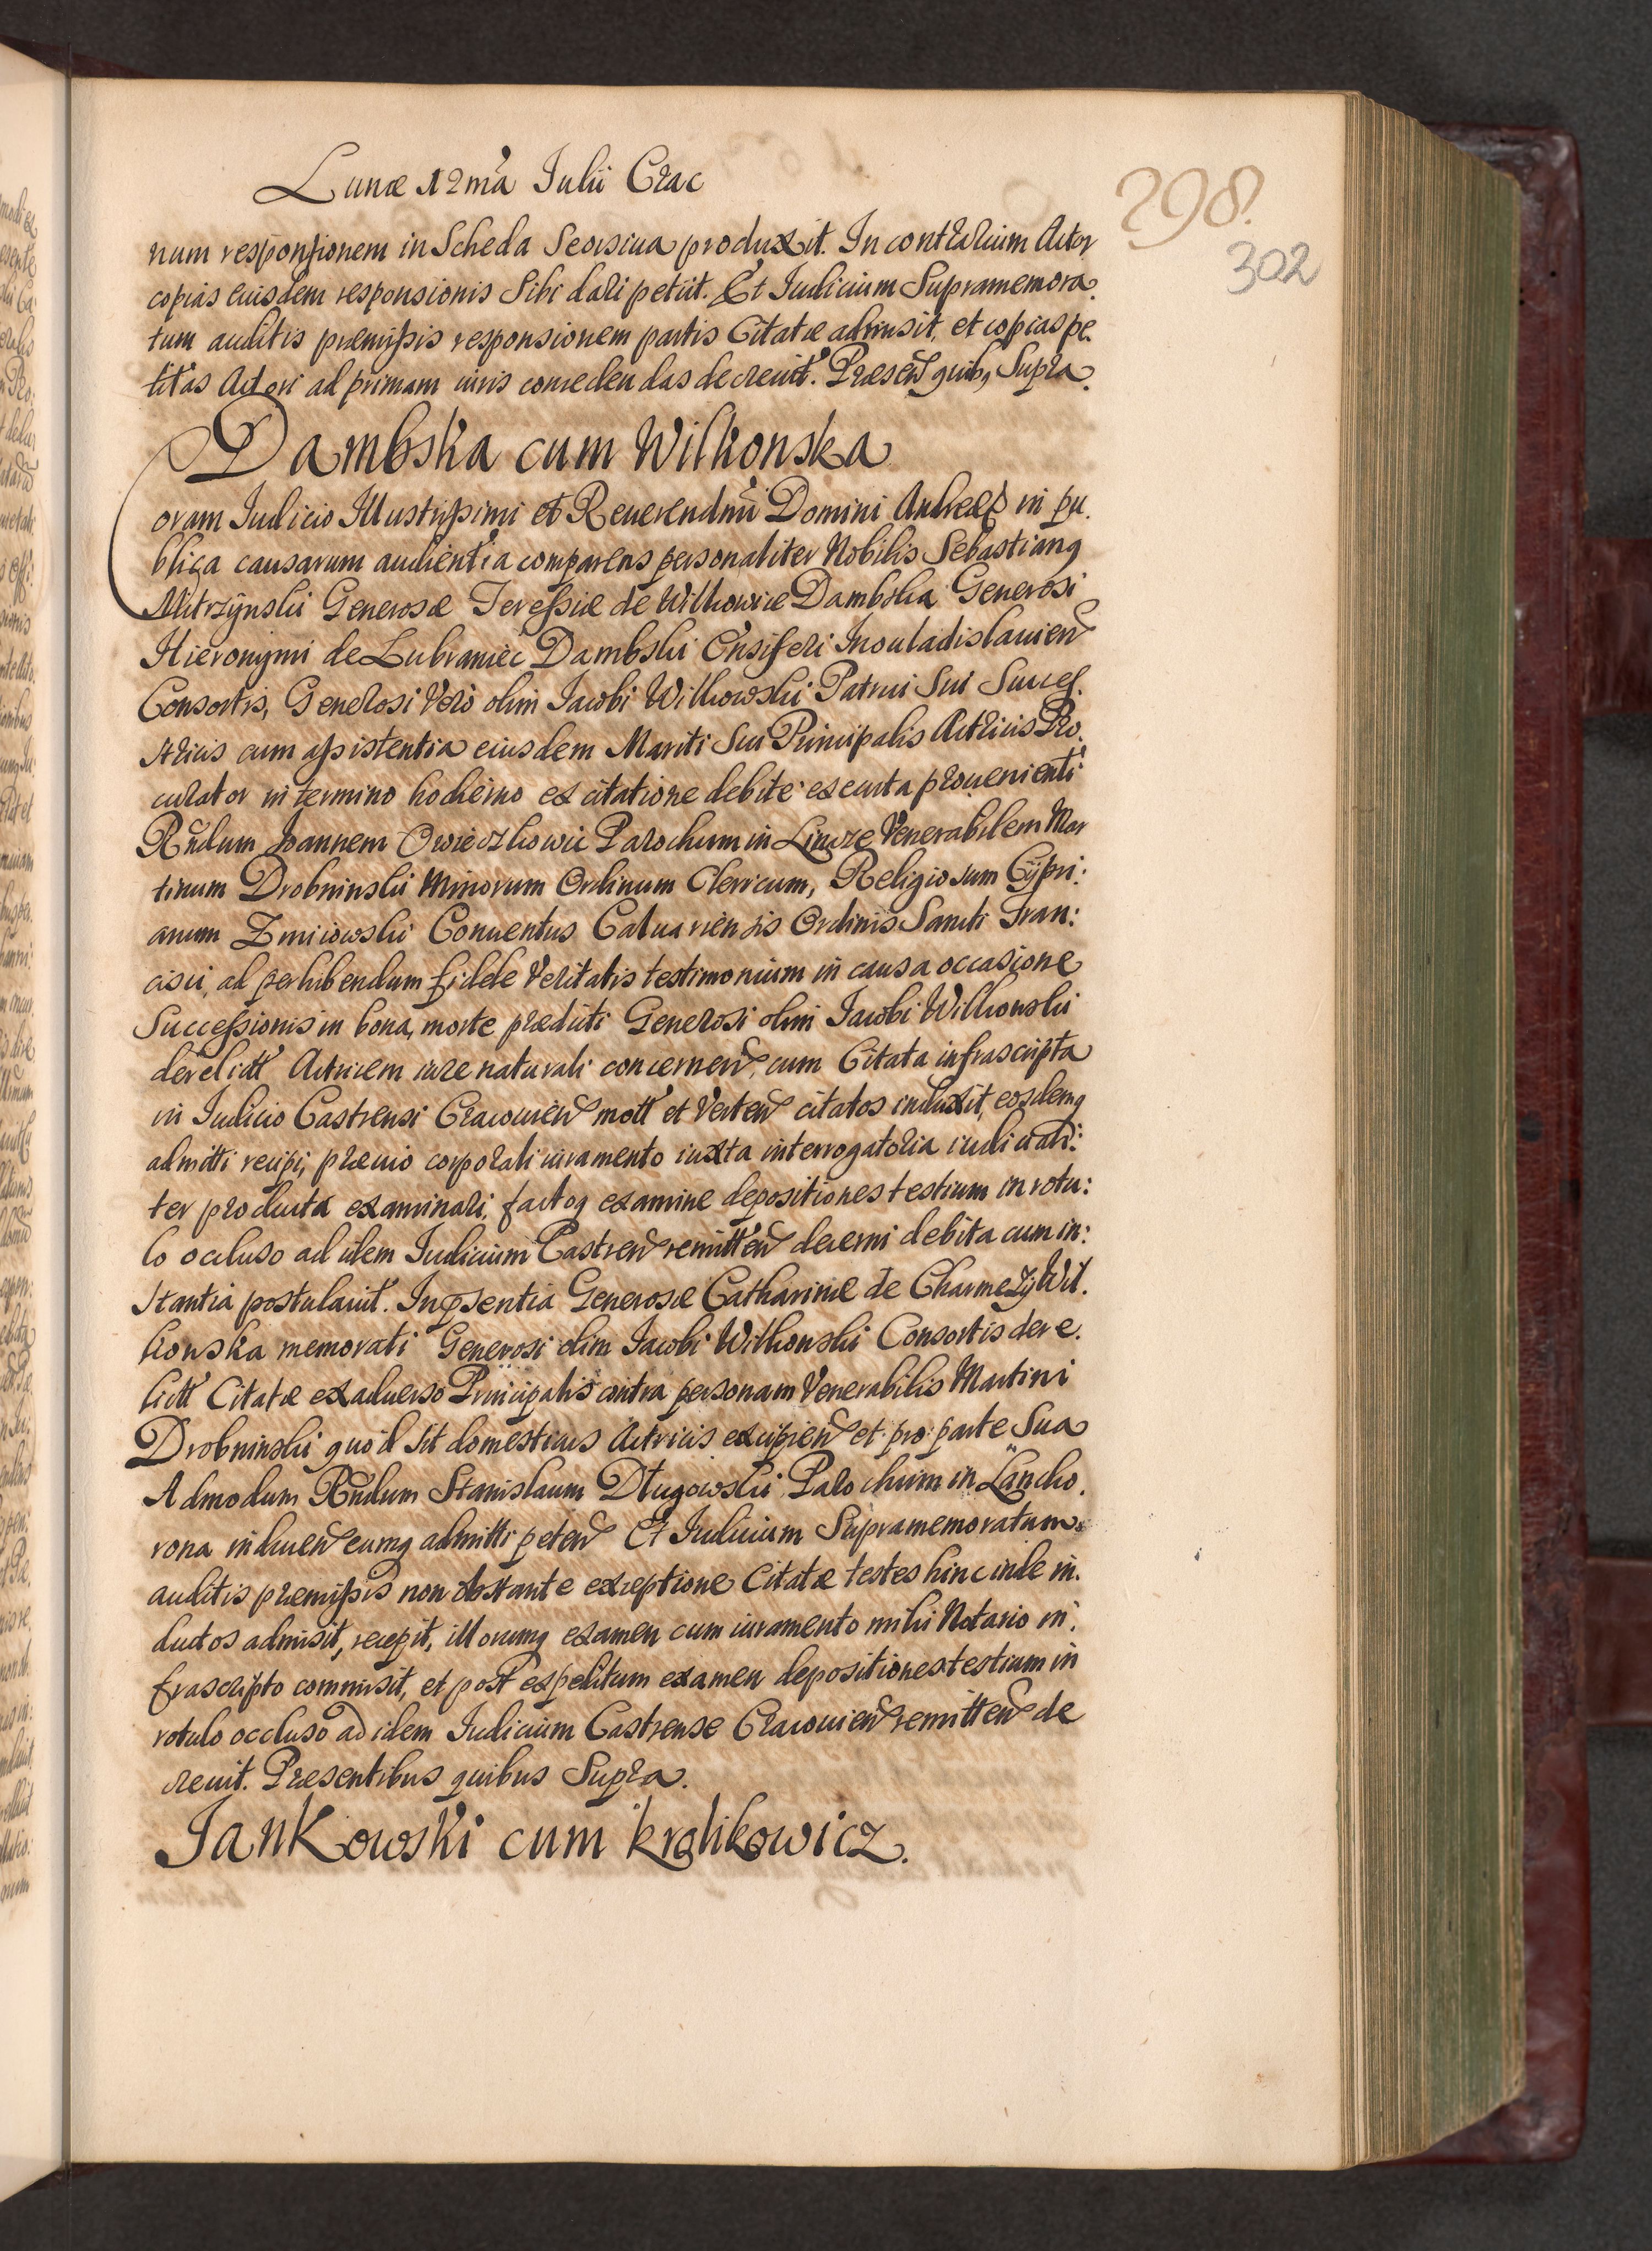 Lunæ 12mâ Iulii Crac
298.
302
num responsionem in Scheda Seorsiua produxit. In contrarium Actor
copias eiusdem responsionis Sibi dari petiit. Et Iudicium Supramemora
tum auditis præmissis responsionem partis Citatæ admisit, et copias pe.
titas Actori ad primam iuris concedendas decreuit. Præseñ quibq Supra.
Dambska cum Wilkonska
oram Iudicio Illustrissimi et Reuerendmi Domini Andreæ in pu.
blica causarum audientia comparens personaliter Nobilis Sebastianq
Mitrzynski Generosæ Teressiæ de Wilkowice Dambska Generosi
Hieronymi de Lubraniec Dambski Ensiferi Inouladislauien
Consortis, Generosi Verò olim Iacobi Wilkowski Patrui Sui Succes.
stricis cum assistentia eiusdem Mariti Sui Principalis Actricis Pro.
curator in termino hodierno ex citatione debite executa prouenienti
Rñdum Joannem Owieczkowic Parochum in Lincze Venerabilem Mar
tinum Drobninski Minorum Ordinum Clericum, Religiosum Cypri:
anum Zmiiowski Conuentus Caluariensis Ordinis Sancti Fran:
cisci, ad perhibendum fidele Veritatis testimonium in causa occasione
Successionis in bona, morte prædicti Generosi olim Iacobi Wilkonski
derelictt Actricem iure naturali concernen, cum Citata infrascripta
in Iudicio Castrensi Cracouien mott et Verten citatos induxit, eosdemq
admitti recipi, præuio corporali iuramento iuxta interrogatoria iudiciali:
ter producta examinari, factoq examine depositiones testium in rotu:
lo occluso ad idem Iudicium Castren remitten decerni debita cum in:
stantia postulauit. In psentia Generosæ Catharinæ de Charmezy Wil.
konska memorati Generosi olim Iacobi Wilkonski Consortis dere.
lictt Citatæ ex aduerso Principalis contra personam Venerabilis Martini
Drobninski quod sit domesticus Actricis excipien et pro parte Sua
Admodum Rñdum Stanislaum Długowski Parochum in Lancko.
rona inducen eumq admitti peten Et Iudicium Supramemoratum
auditis præmissis non obstante exceptione Citatæ testes hinc inde in.
ductos admisit, recepit, illorumq examen cum iuramento mihi Notario in.
frascripto commisit, et post expeditum examen depositiones testium in
rotulo occluso ad idem Iudicium Castrense Cracouien remitten de
creuit. Præsentibus quibus Supra.
Jankowski cum krolikowicz.